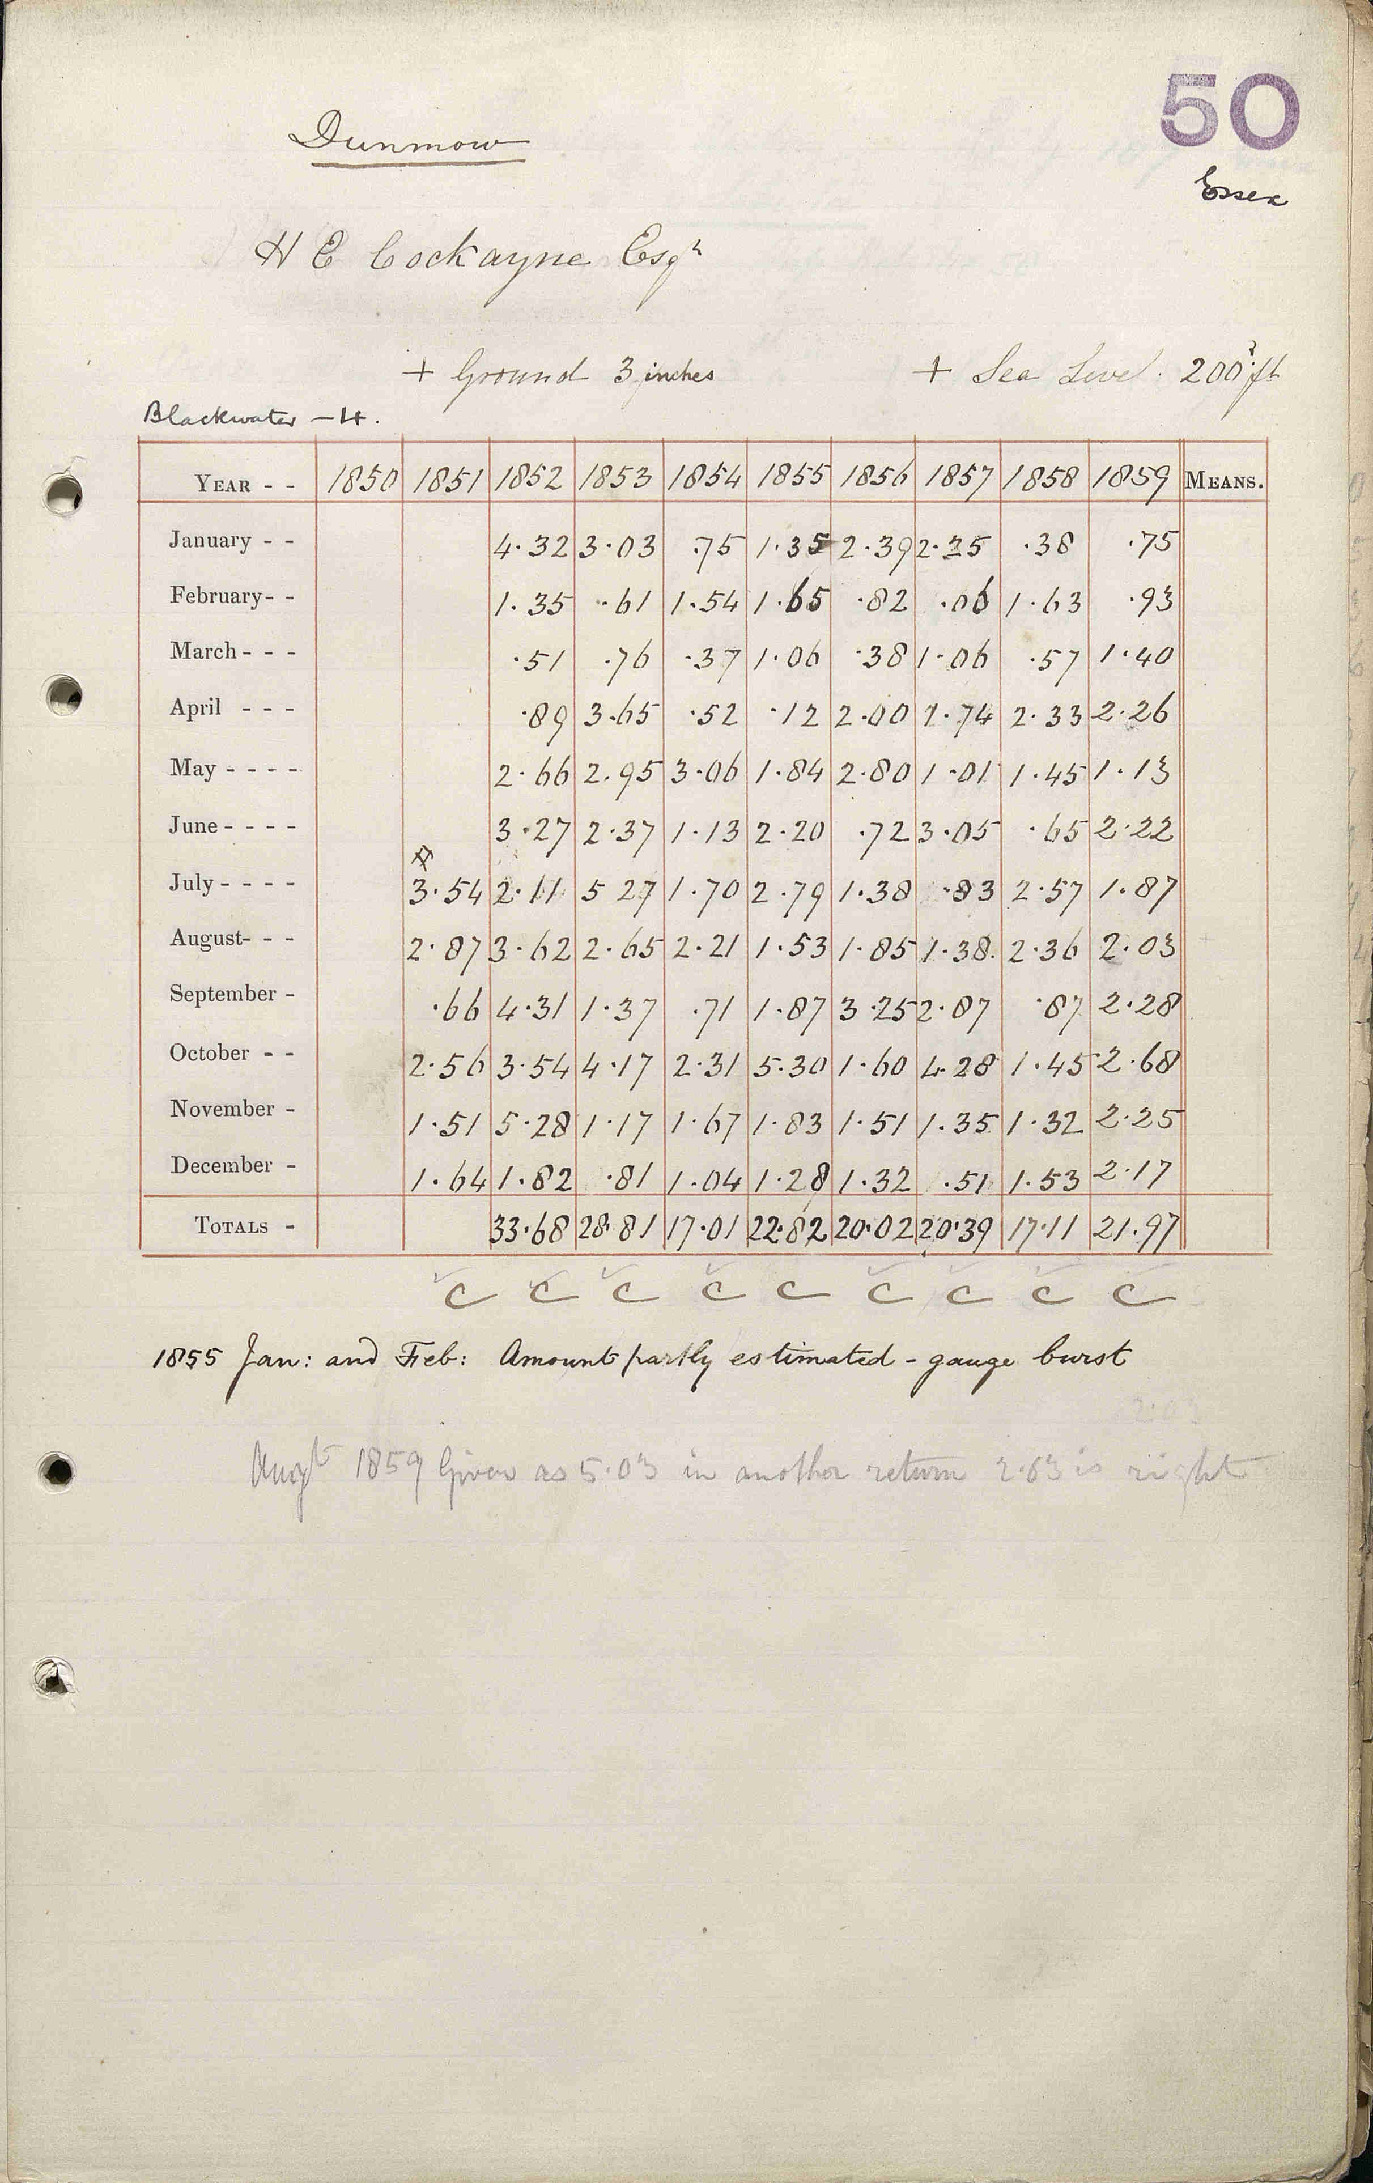 50
Dunmow
Essex
H E Cockayne Esqr
+ Ground 3 inches + Sea Level 200 ? ft
Blackwater - 4.
YEAR - - 1850 1851 1852 1853 1854 1855 1856 1857 1858 1859 MEANS.
January - - 4.32 3.03 .75 1.35 2.39 2.25 .38 .75
February - - 1.35 .61 1.54 1.65 .82 .06 1.63 .93
March - - - .51 .76 .37 1.06 .38 1.06 .57 1.40
April - - - .89 3.65 .52 .12 2.00 1.74 2.33 2.26
May - - - - 2.66 2.95 3.06 1.84 2.80 1.01 1.45 1.13
June - - - - 3.27 2.37 1.13 2.20 .72 3.05 .65 2.22
July - - - - 3.54 2.11 5 27 1.70 2.79 1.38 .83 2.57 1.87
August - - - 2.87 3.62 2.65 2.21 1.53 1.85 1.38 2.36 2.03
September - .66 4.31 1.37 .71 1.87 3.25 2.87 .87 2.28
October - - 2.56 3.54 4.17 2.31 5.30 1.60 4.28 1.45 2.68
November - 1.51 5.28 1.17 1.67 1.83 1.51 1.35 1.32 2.25
December - 1.64 1.82 .81 1.04 1.28 1.32 .51 1.53 2.17
TOTALS - 33.68 28.81 17.01 22.82 20.02 20.39 17.11 21.97
C C C C C C C C C
1855 Jan: and Feb: Amount partly estimated - gauge burst
2.03
Augt 1859 Given as 5.03 in another return 2.03 is right